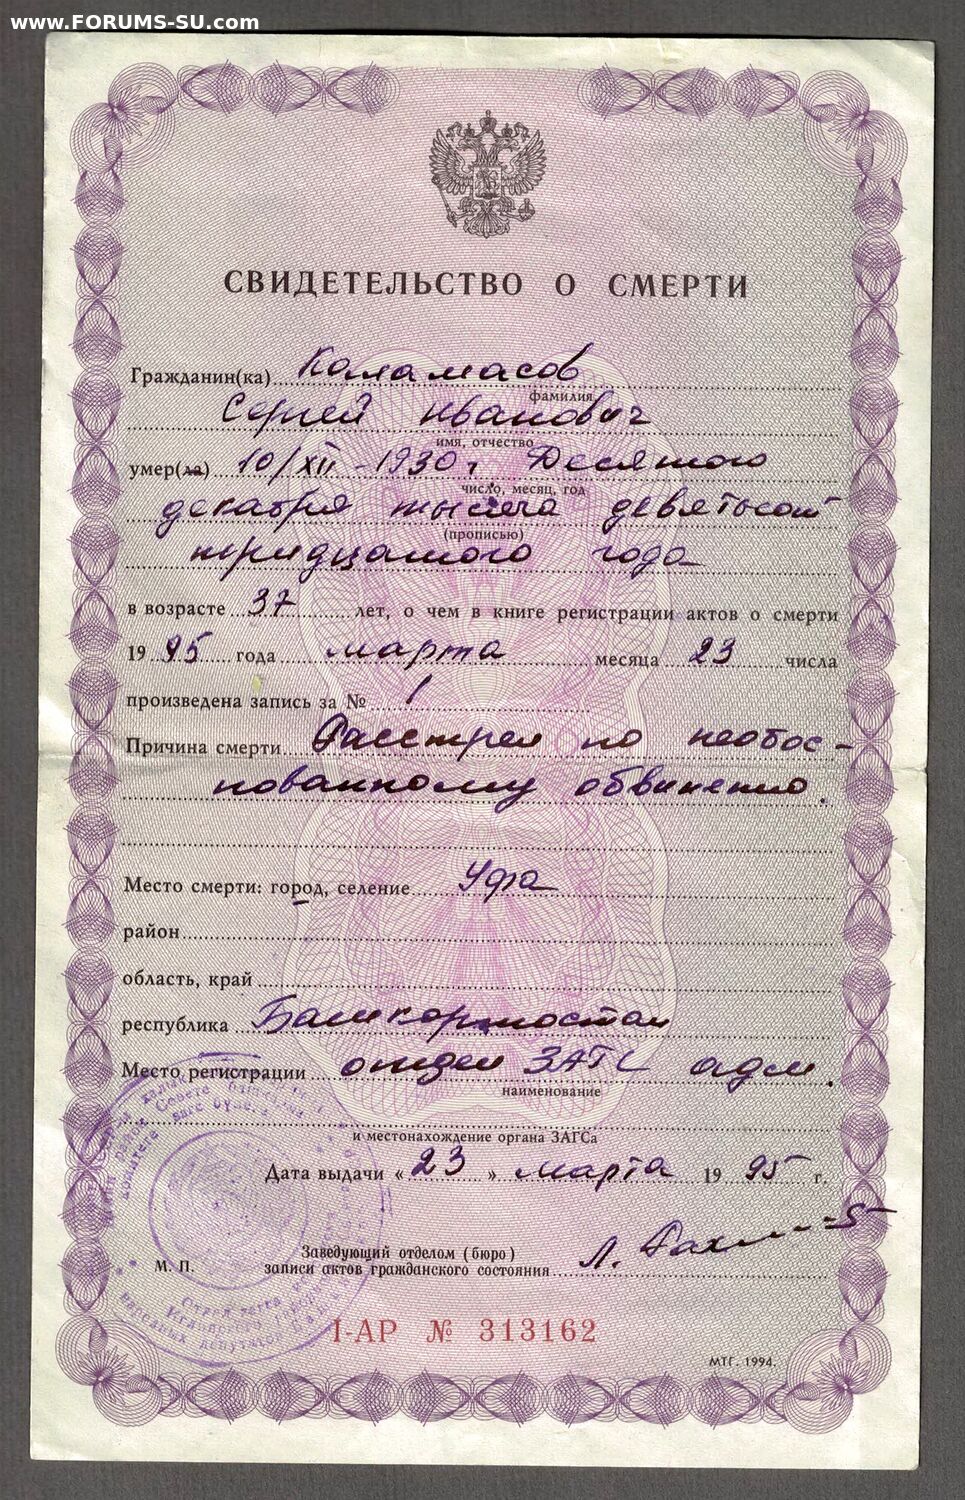 www.FORUMS-SU.com
СВИДЕТЕЛЬСТВО О СМЕРТИ
Гражданин(ка) Каламасов
фамилия,
Сергей Иванович
имя, отчество
умер(ла) 10/XII - 1930 г Десятого
число, месяц, год
декабря тысяча девятьсот
(прописью)
тридцатого года
в возрасте 37 лет, о чем в книге регистрации актов о смерти
19 95 года марта месяца 23 числа
произведена запись за № 1
Причина смерти Расстрел по необос-
нованному обвинению.
Место смерти: город, селение Уфа
район
область, край
республика Башкортостан
Место регистрации отдел ЗАГС адм.
наименование
и местонахождение органа ЗАГСа
Дата выдачи « 23 » марта 19 95 г.
Заведующий отделом (бюро)
М. П. записи актов гражданского состояния Л.
I-АР № 313162
МТГ. 1994.